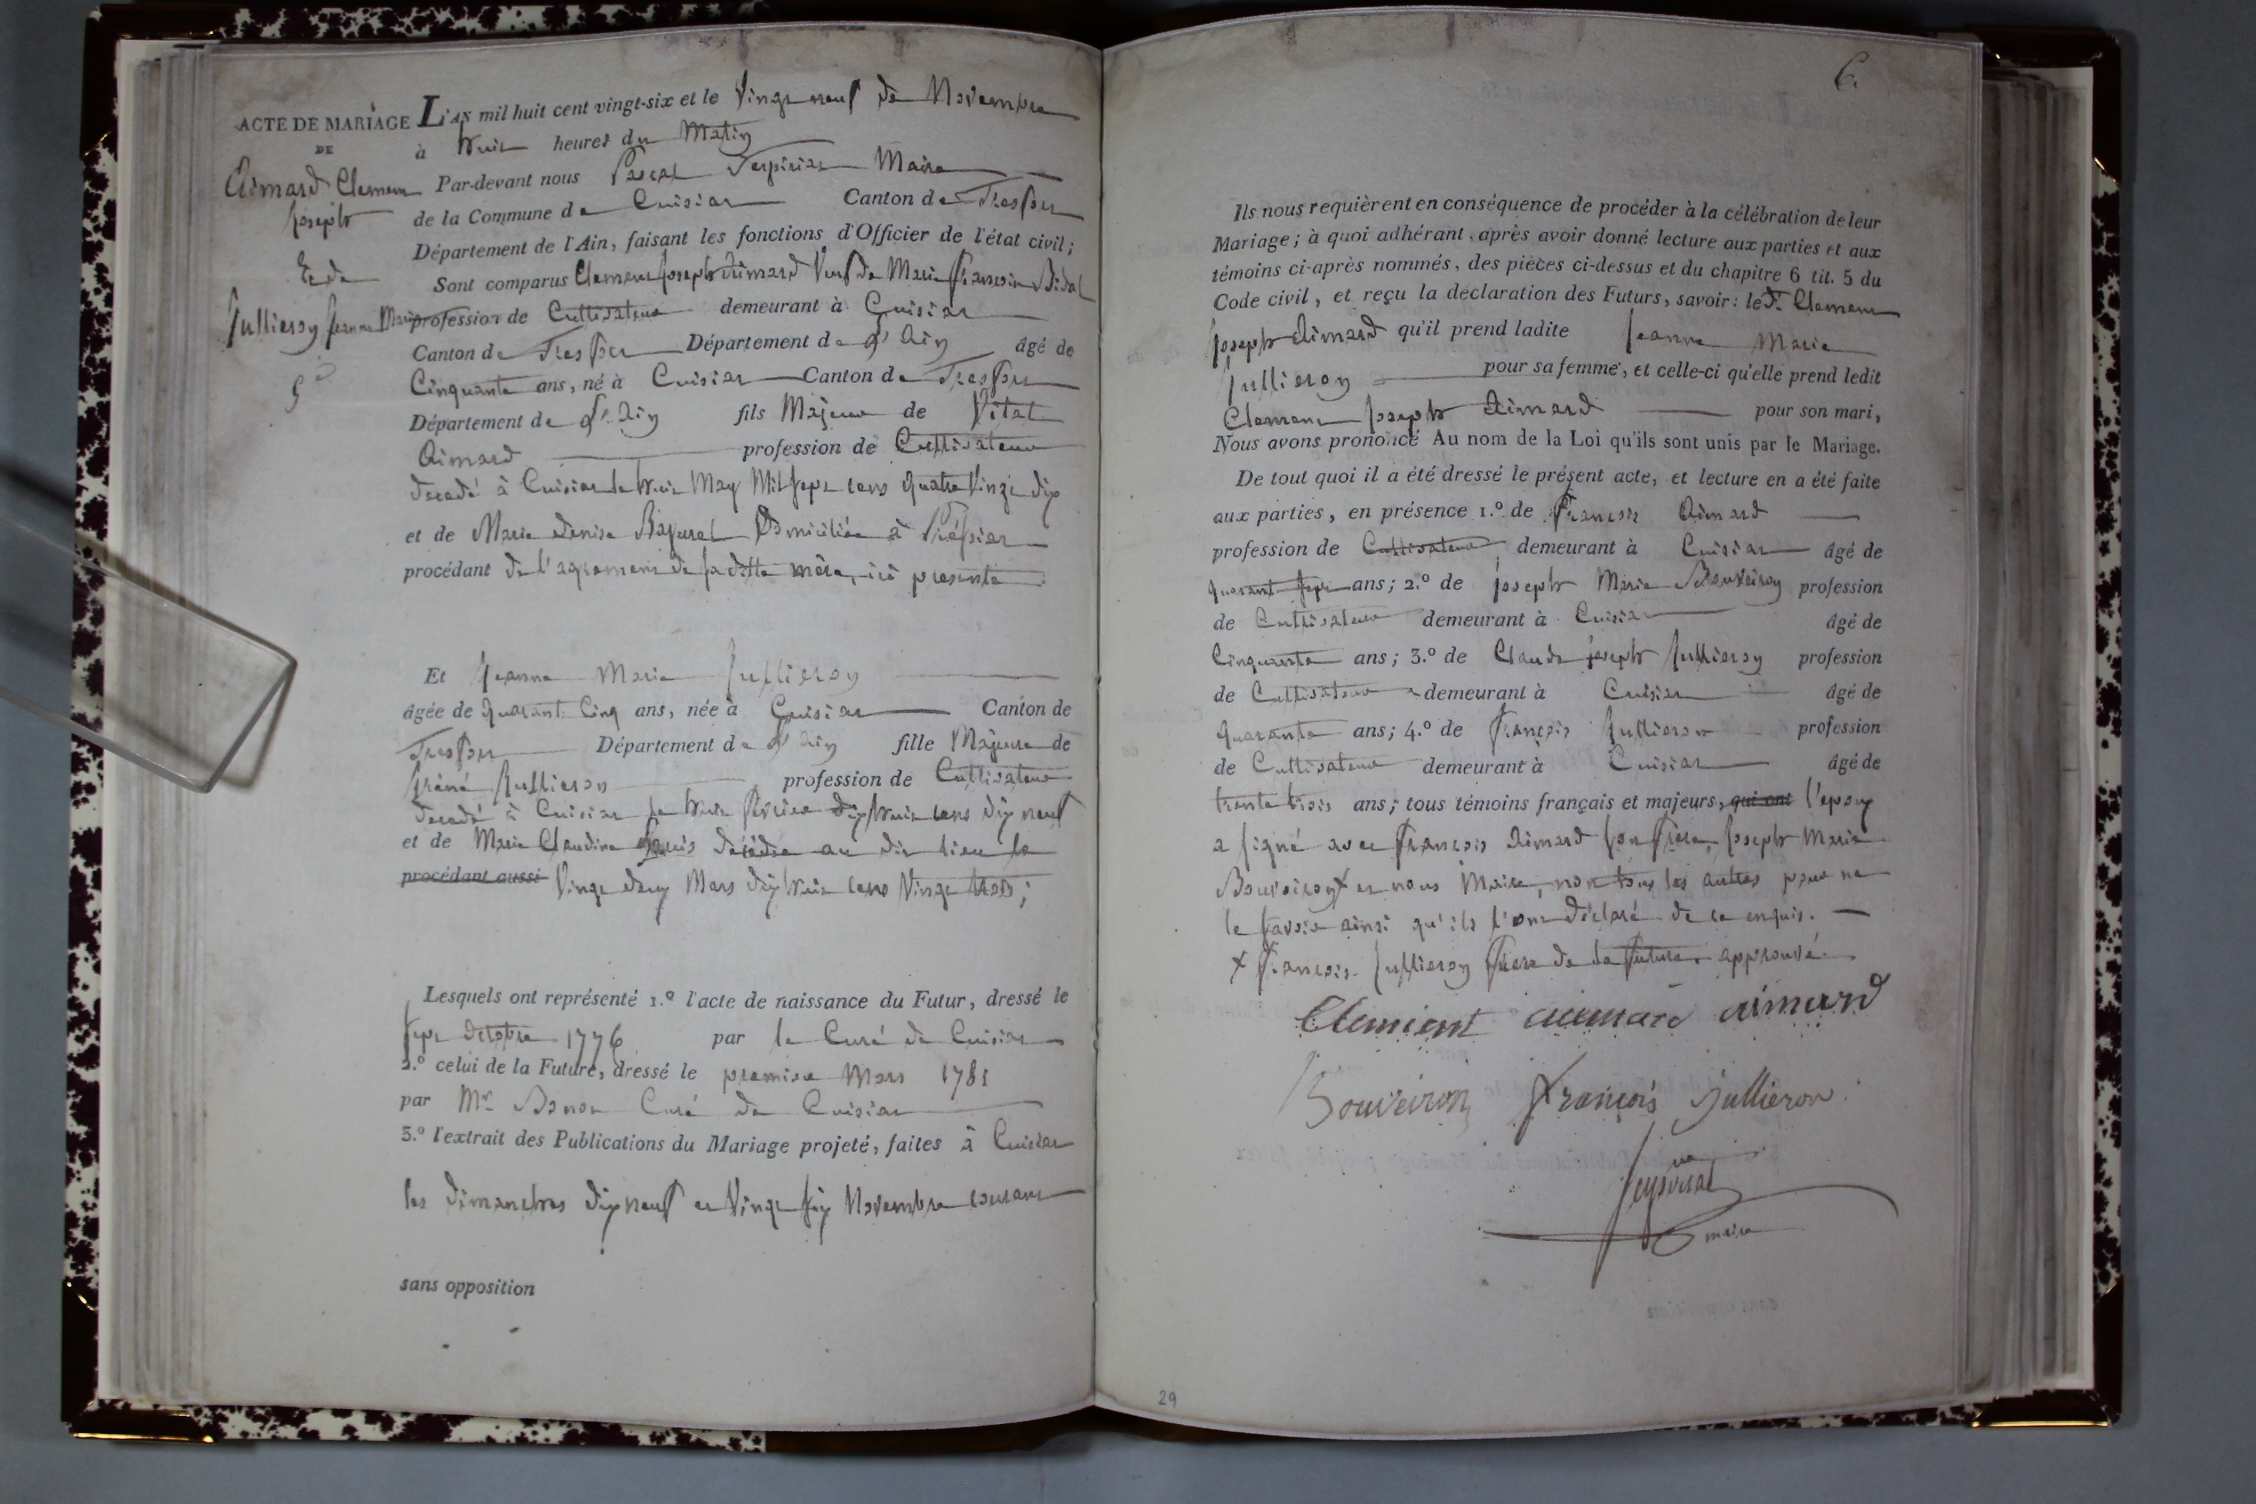 ACTE DE MARIAGE
DE
Aimard Clement
Joseph
Et de
Jullieron Jeanne Marie
L'AN mil huit cent vingt-six et le Vingt neuf de Novembre
à huit heures du Matin
Par-devant nous Pascal Maire
de la Commune de Cuisiat Canton de Treffort
Département de l'Ain, faisant les fonctions d'Officier de l'état civil;
Sont comparus Clement Joseph Aimard Veuf de Marie Francoise Vidal
profession de Cultivateur demeurant à Cuisiat
Canton de Treffort Département de l'Ain âgé de
Cinquante ans, né à Cuisiat Canton de Treffort
Département de l'Ain fils Majeur de Vital
Aimard profession de Cultivateur
decedé à Cuisiat le huit May Mil sept cens quatre Vingt dix
et de Marie Denise Domiciliée à
procédant de l'agrement de sa ditte mère, ici presente
Et Jeanne Marie Jullieron
âgée de quarant Cinq ans, née à Cuisiat Canton de
Treffort Département de l'Ain fille Majeure de
Jullieron profession de Cultivateur
decedé à Cuisiat le huit Fevrier dix huit cens dix neuf
et de Marie Claudine décédée au dit lieu le
procédant aussi Vingt deux Mars dix huit cens Vingt trois;
Lesquels ont représenté 1.º l'acte de naissance du Futur, dressé le
sept octobre 1776 par le Curé de Cuisiat
2.º celui de la Future, dressé le premier Mars 1781
par Mr. Curé de Cuisiat
3.º l'extrait des Publications du Mariage projeté, faites à Cuisiat
les dimanches dix neuf et Vingt six Novembre courant
sans opposition
6.
Ils nous requièrent en conséquence de procéder à la célébration de leur
Mariage; à quoi adhérant, après avoir donné lecture aux parties et aux
témoins ci-après nommés, des pièces ci-dessus et du chapitre 6 tit. 5 du
Code civil, et reçu la déclaration des Futurs, savoir: le d. Clement
Joseph Aimard qu'il prend ladite Jeanne Marie
Jullieron pour sa femme, et celle-ci qu'elle prend ledit
Clement Joseph Aimard pour son mari,
Nous avons prononcé Au nom de la Loi qu'ils sont unis par le Mariage.
De tout quoi il a été dressé le présent acte, et lecture en a été faite
aux parties, en présence 1.º de François Aimard
profession de Cultivateur demeurant à Cuisiat âgé de
quarant sept ans; 2.º de Joseph Marie Bouveiron profession
de Cultivateur demeurant à Cuisiat âgé de
Cinquante ans; 3.º de Claude Joseph Jullieron profession
de Cultivateur demeurant à Cuisiat âgé de
quarante ans; 4.º de François Jullieron profession
de Cultivateur demeurant à Cuisiat âgé de
trente trois ans; tous témoins français et majeurs, qui ont l'epoux
a signé avec François Aimard son frere, Joseph Marie
Bouveiron x et nous Maire, non tous les autres pour ne
le savoir ainsi qu'ils l'ont déclaré de ce enquis.
x François Jullieron frere de la future. approuvé
Clemient aimard aimard
Bouveiron François Jullieron
maire
29